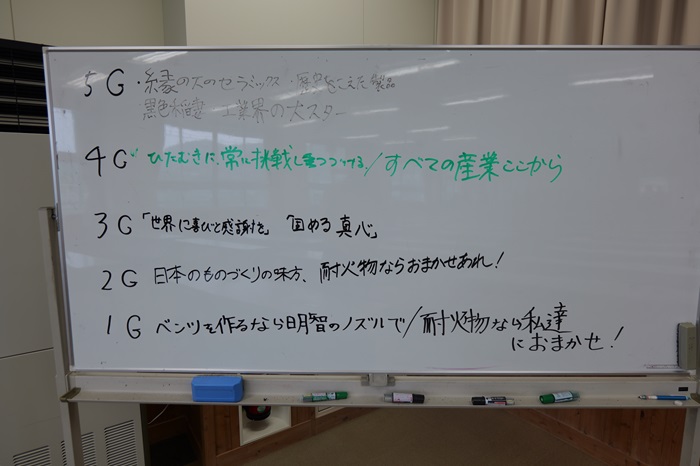 5G・縁の下のセラミックス・歴史をこえた製品
黒色稲妻・工業界の大スター
4G ひたむきに、常に挑戦しつづける/すべての産業ここから
3G 「世界に喜びと感謝を」「固める真心」
2G 日本のものづくりの味方、耐火物ならおまかせあれ!
1G ベンツを作るなら明智のノズルで/耐火物なら私達
におまかせ!